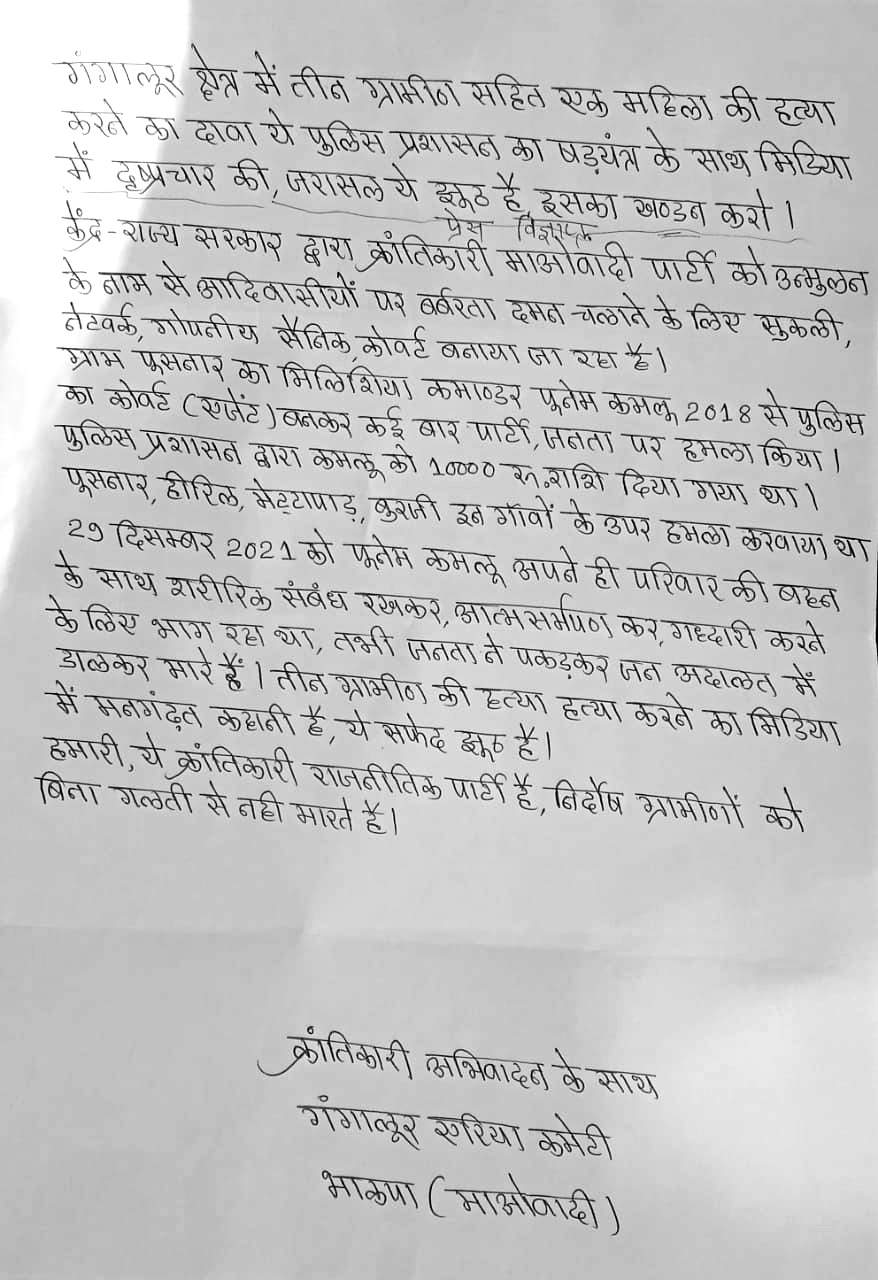 गंगालूर क्षेत्र में तीन ग्रामीण सहित एक महिला की हत्या
करने का दावा ये पुलिस प्रशासन का षड़यंत्र के साथ मिडिया
में दुष्प्रचार की, जरासल ये झूठ है, इसका खण्डन करो।
प्रेस विज्ञप्ति
केंद्र-राज्य सरकार द्वारा क्रांतिकारी माओवादी पार्टी को उन्मुलन
के नाम से आदिवासीयों पर बर्बरता दमन-चलाने के लिए सुकली,
नेटवर्क, गोपनीय सैनिक, कोवर्ट बनाया जा रहा है।
ग्राम पुसनार का मिलिशिया कमाण्डर पुनेम कमलू 2018 से पुलिस
का कोवर्ट (एजेंट) बनकर कई बार पार्टी, जनता पर हमला किया।
पुलिस प्रशासन द्वारा कमलू को 10000 रू. राशि दिया गया था।
पुसनार, हीरिल, मेट्टापाड़, बुरजी इन गॉवों के उपर हमला करवाया था
29 दिसम्बर 2021 को पुनेम कमलू अपने ही परिवार की बहन
के साथ शरीरिक संबंध रखकर, आत्मसर्मपण कर, गध्दारी करने
के लिए भाग रहा था, तभी जनता ने पकड़कर जन अदालत में
डालकर मारे हैं। तीन ग्रामीण की हत्या हत्या करने का मिडिया
में मनगंढ़त कहानी है, ये सफेद झूठ है।
हमारी, ये क्रांतिकारी राजनीतिक पार्टी है, निर्दोष ग्रामीणों को
बिना गलती से नही मारते है।
क्रांतिकारी अभिवादन के साथ
गंगालूर एरिया कमेटी
भाकपा (माओवादी)